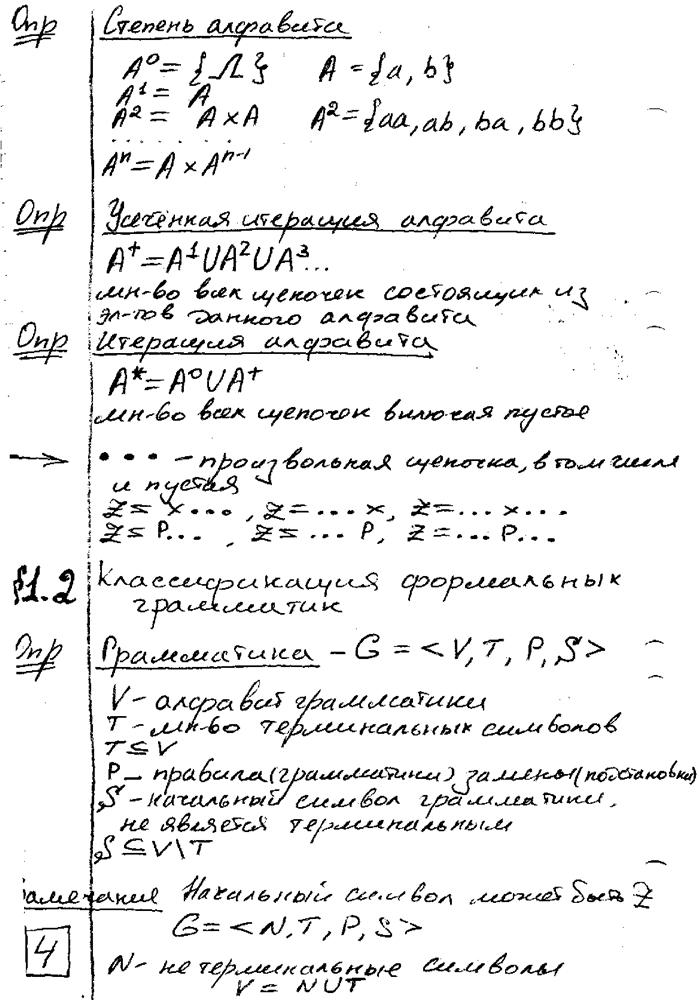 Опр Степень алфавита
A⁰ = {Λ} A = {a, b}
A¹ = A
A² = A × A A² = {aa, ab, ba, bb}
. . . . . . . .
Aⁿ = A × Aⁿ⁻¹
Опр Усечённая итерация алфавита
A⁺ = A¹ ∪ A² ∪ A³...
мн-во всех цепочек состоящих из
эл-тов данного алфавита
Опр Итерация алфавита
A* = A⁰ ∪ A⁺
мн-во всех цепочек включая пустое
→ • • • – произвольная цепочка, в том числе
и пустая
Z = x..., Z = ... x, Z = ... x ...
Z = P..., Z = ... P, Z = ... P ...
§1.2 Классификация формальных
грамматик
Опр Грамматика – G = <V, T, P, S>
V – алфавит грамматики
T – мн-во терминальных символов
T ⊆ V
P – правила (грамматики) замены (подстановки)
S – начальный символ грамматики,
не является терминальным
S ⊆ V \ T
амечание Начальный символ может быть Z
G = <N, T, P, S>
4 N – не терминальные символы
V = N ∪ T